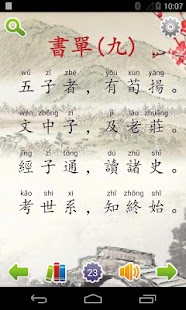 10:07
書單(九)
wǔ zǐ zhě yǒu xún yáng
五子者，有荀揚。
wén zhōng zǐ jí lǎo zhuāng
文中子，及老莊。
jīng zǐ tōng dú zhū shǐ
經子通，讀諸史。
kǎo shì xì zhī zhōng shǐ
考世系，知終始。
23